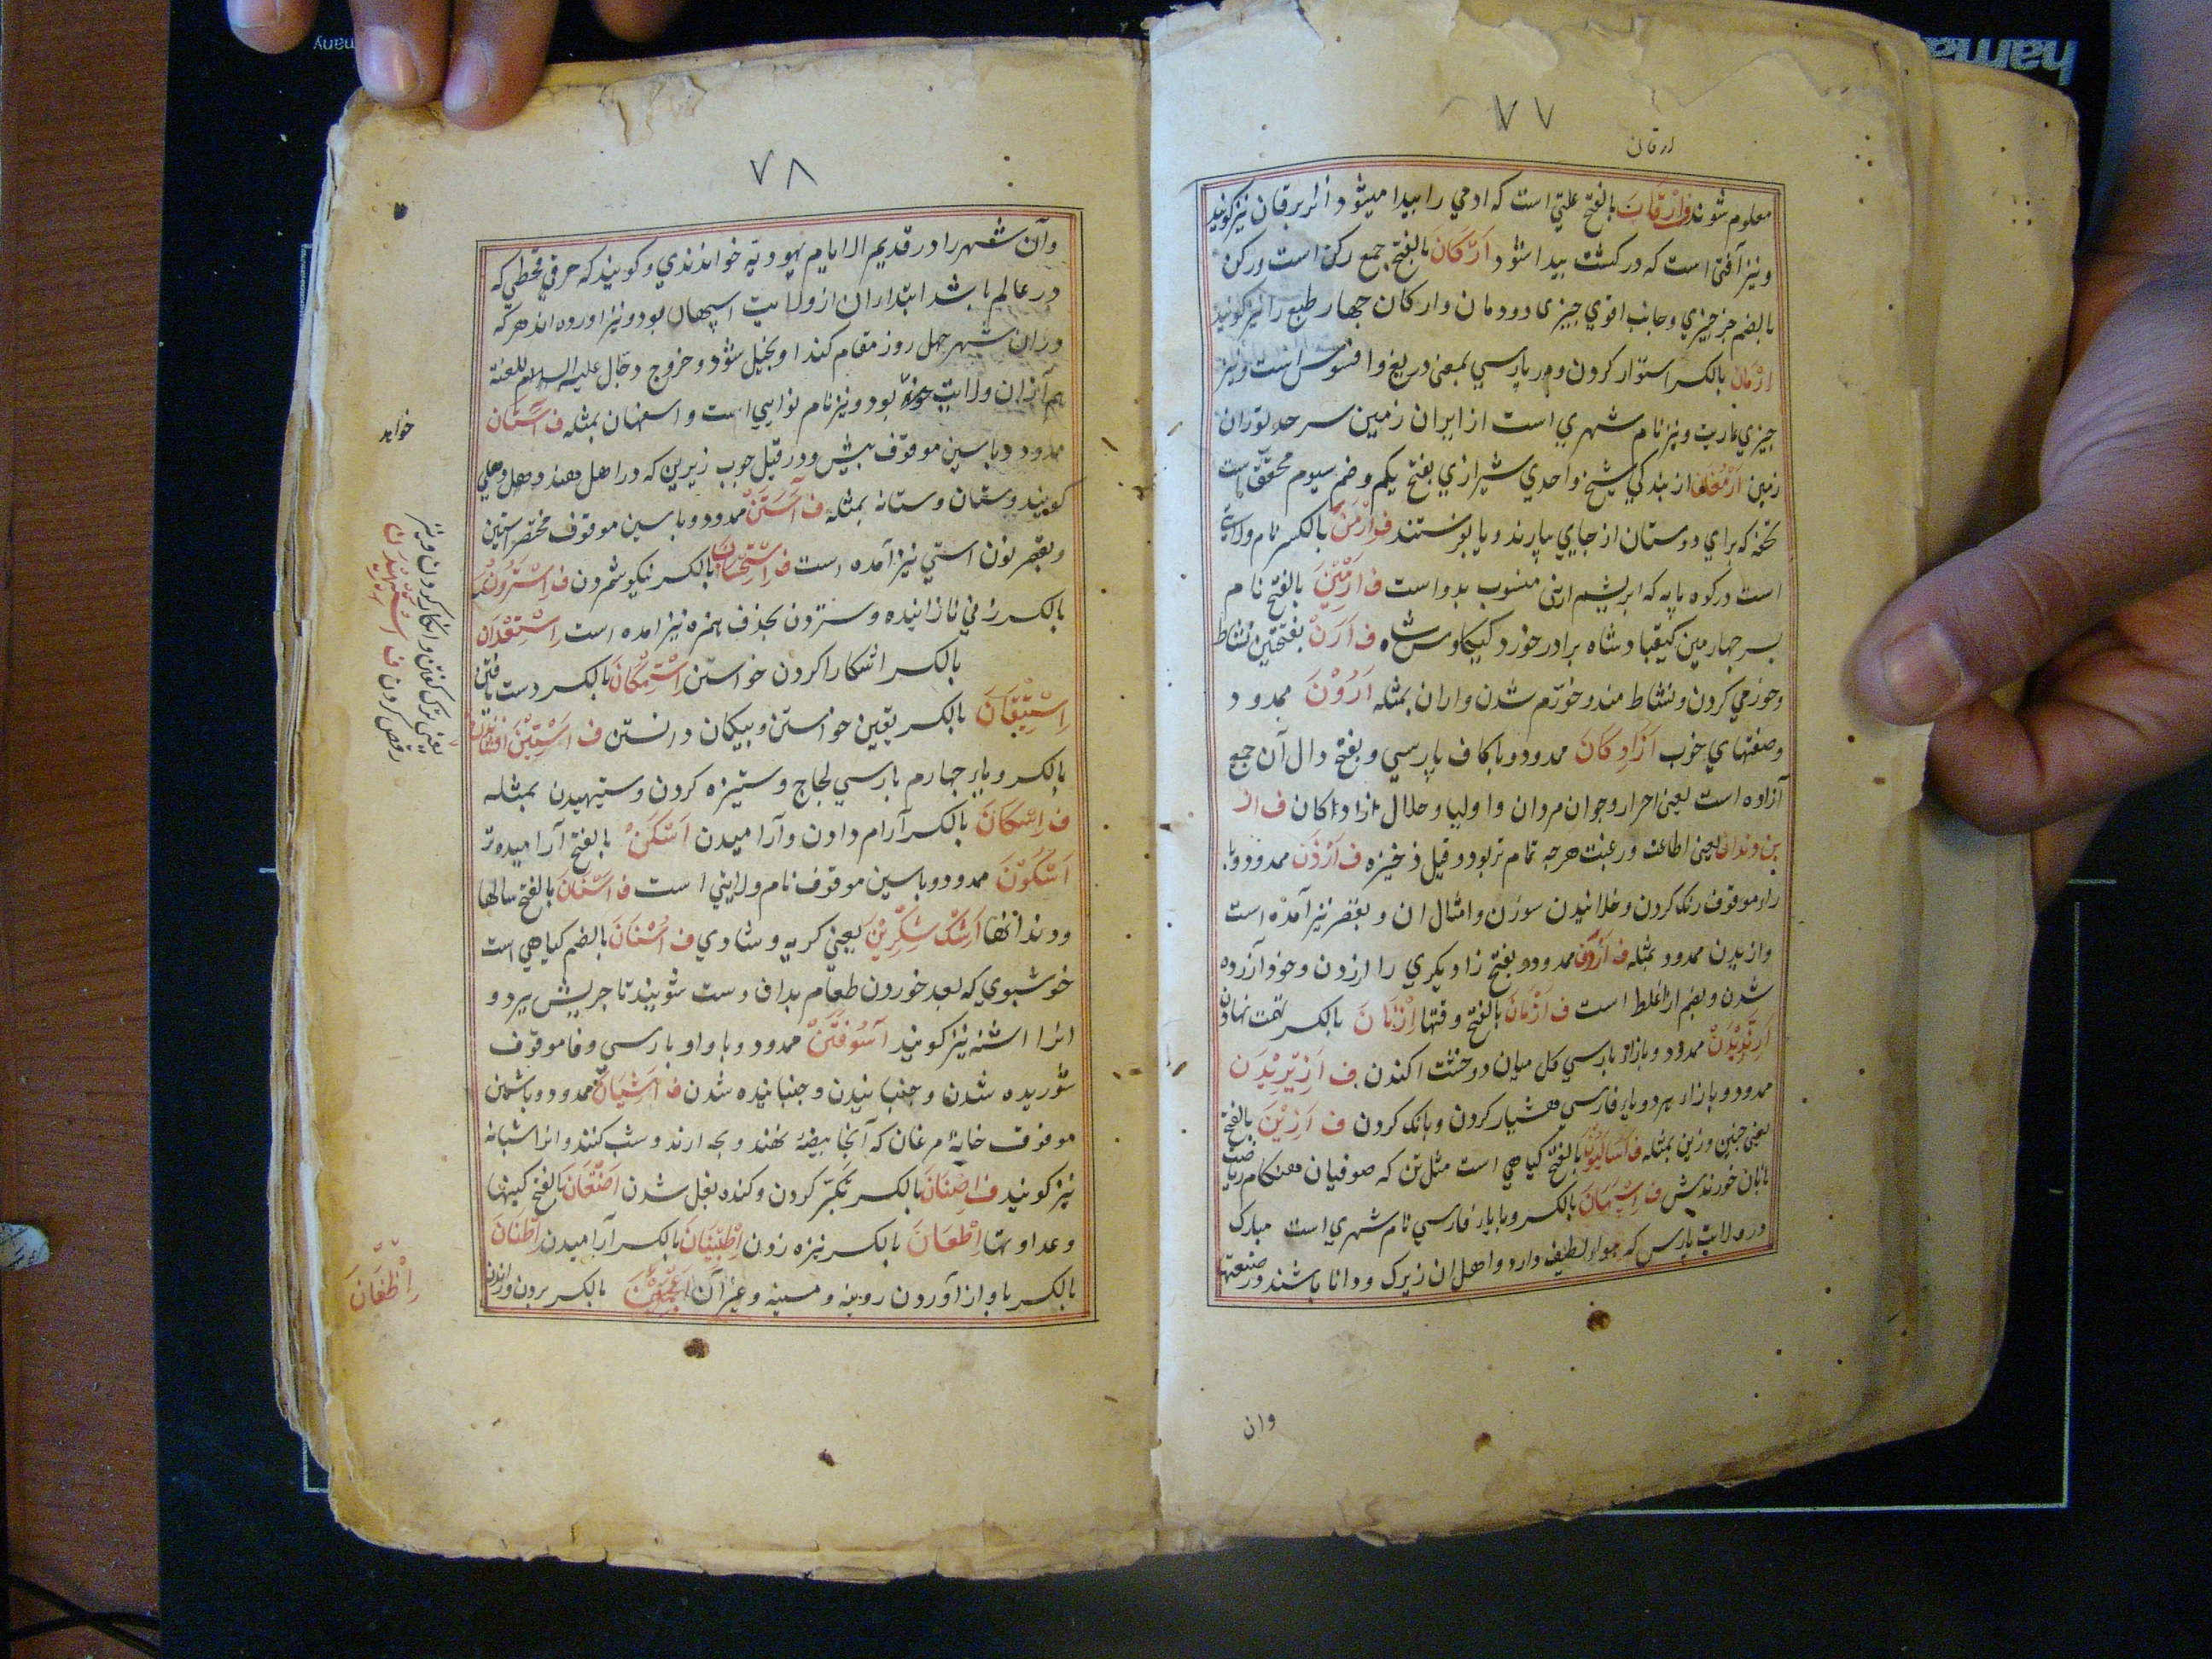 ٧٧
ارقان
معلوم شوند ف ارقان بالفتح علتی است که ادمی را پیدا میشود انرا یرقان نیز کویند
ونیز آفتی است که در کشت پیدا شود ارکان بالفتح جمع رکن است ورکن
بالضم جز چیزی وجانب اقوی چیزی ودودمان وارکان چهار طبع را نیز کویند
ازمان بالکسر استوار کردن ودر پارسی بمعنی دریغ وافسوس است ونیز
چیزی عاریت ونیز نام شهری است از ایران زمین سرحد توران
زمین ارمغان از بندکی شیخ واحدی شیرازی بفتح یکم وضم سیوم محقق است
تحفه که برای دوستان از جایی بیارند ویا بفرستند ف ارمن بالکسر نام ولایتی
است در کوه پایه که ابریشم ارمنی منسوب بدو است ف ارمین بالفتح نام
پسر چهارمین کیقباد شاه برادر خورد کیکاوس شاه ف ارن بفتحتین نشاط
وخورمی کردن ونشاط مند وخورم شدن واران بمثله ارون ممدود
وصفتهای خوب ازادکان ممدود وبا کاف پارسی وبفتح دال آن جمع
آزاده است یعنی احرار وجوان مردان واولیا وحلال ازاداکان ف از
بن وندان یعنی اطاعت ورغبت هرچه تمام تر بود وقیل ذخیزه ف آزدن ممدود وبا
زاء موقوف رنک کردن وخلانیدن سوزن وامثال ان وبقصر نیز آمده است
وازیدن ممدود بمثله ف ازردن ممدود وبفتح زا دیکری را ازردن وخود آزرده
شدن وبضم ازا غلط است ف ازمان بالفتح وقتها ازنان بالکسر تهمت نهادن
ممدود وبازاء پارسی کل میان دو خشت اکندن ف ازیریدن
ممدود وبازاء بهر دو یاء فارسی هشیار کردن وبانک کردن ف ازین بالفتح
یعنی چنین وزین بمثله ف اسالیون بالفتح کیاهی است مثل تن که صوفیان هنکام ریاضت
بانان خورندش ف اسپهان بالکسر وبا یاء فارسی نام شهری است مبارک
در ولایت پارس که هواء لطیف دارد واهل ان زیرک ودانا باشند ودر صنعتها
وان
٧٨
وآن شهر را در قدیم الایام یهودیه خواندندی وکویند که حرفی قحطی که
در عالم باشد ابتداران از ولایت اسپهان بود ونیز اورده اند هر که
دران شهر چهل روز مقام کند او بخیل شود وخروج دجال علیه اللعنه
هم آزان ولایت خواهد بود ونیز نام نوایی است واسفهان بمثله ف آستان
ممدود وباسین موقوف پیش ودر قیل چوب زیرین که در اهل هند دهلی
کویند وستان وستانه بمثله ف آستن ممدود وباسین موقوف مختصر استین
وبقصر نون استی نیز آمده است ف استحسان بالکسر نیکو شمردن ف استرون
بالکسر زنی نازاینده وسترون بحذف همزه نیز امده است استعدان
بالکسر اشکارا کردن خواستن استمکان بالکسر دست یافتن
استیقان بالکسر یقین خواستن وبیکمان دانستن ف استین افشاندن
یعنی ترک کفتن وانکار کردن ونیز
رقص کردن ف استهیدن
بالکسر ویاء چهارم پارسی لجاج وستیزه کردن وستیهیدن بمثله
ف اسکان بالکسر آرام دادن وآرامیدن اسکن بالفتح آرامیده تر
اسکون ممدود وباسین موقوف نام ولایتی است ف اسنان بالفتح سالها
ودندانها اشک شکرین یعنی کریه وشادی ف اشنان بالضم کیاهی است
خوشبوی که بعد خوردن طعام بدان دست شویند تا چربش ببرد و
انرا اشنه نیز کویند آشوفتن ممدود وبا واو پارسی وفا موقوف
شوریده شدن وجنبانیدن وجنبانیده شدن ف آشیان ممدود وباشین
موقوف خانهٔ مرغان که آنجا بیضه نهند وبچه ارند وشب کنند وانرا اشیانه
نیز کویند ف اصنان بالکسر تکبر کردن وکنده بغل شدن اضغان بالفتح کینها
وعداوتها اطعان بالکسر نیزه زدن اطمینان بالکسر آرامیدن اطنان
بالکسر باواز آوردن رویینه ومسینه وغیر آن بالکسر بردن وراندن
اظعان